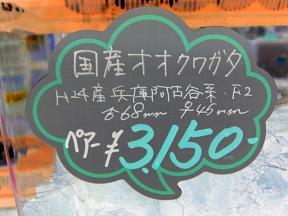 国産オオクワガタ
H24産兵庫阿古谷系.F2
♂68mm ♀45mm
ペアー ¥3,150-